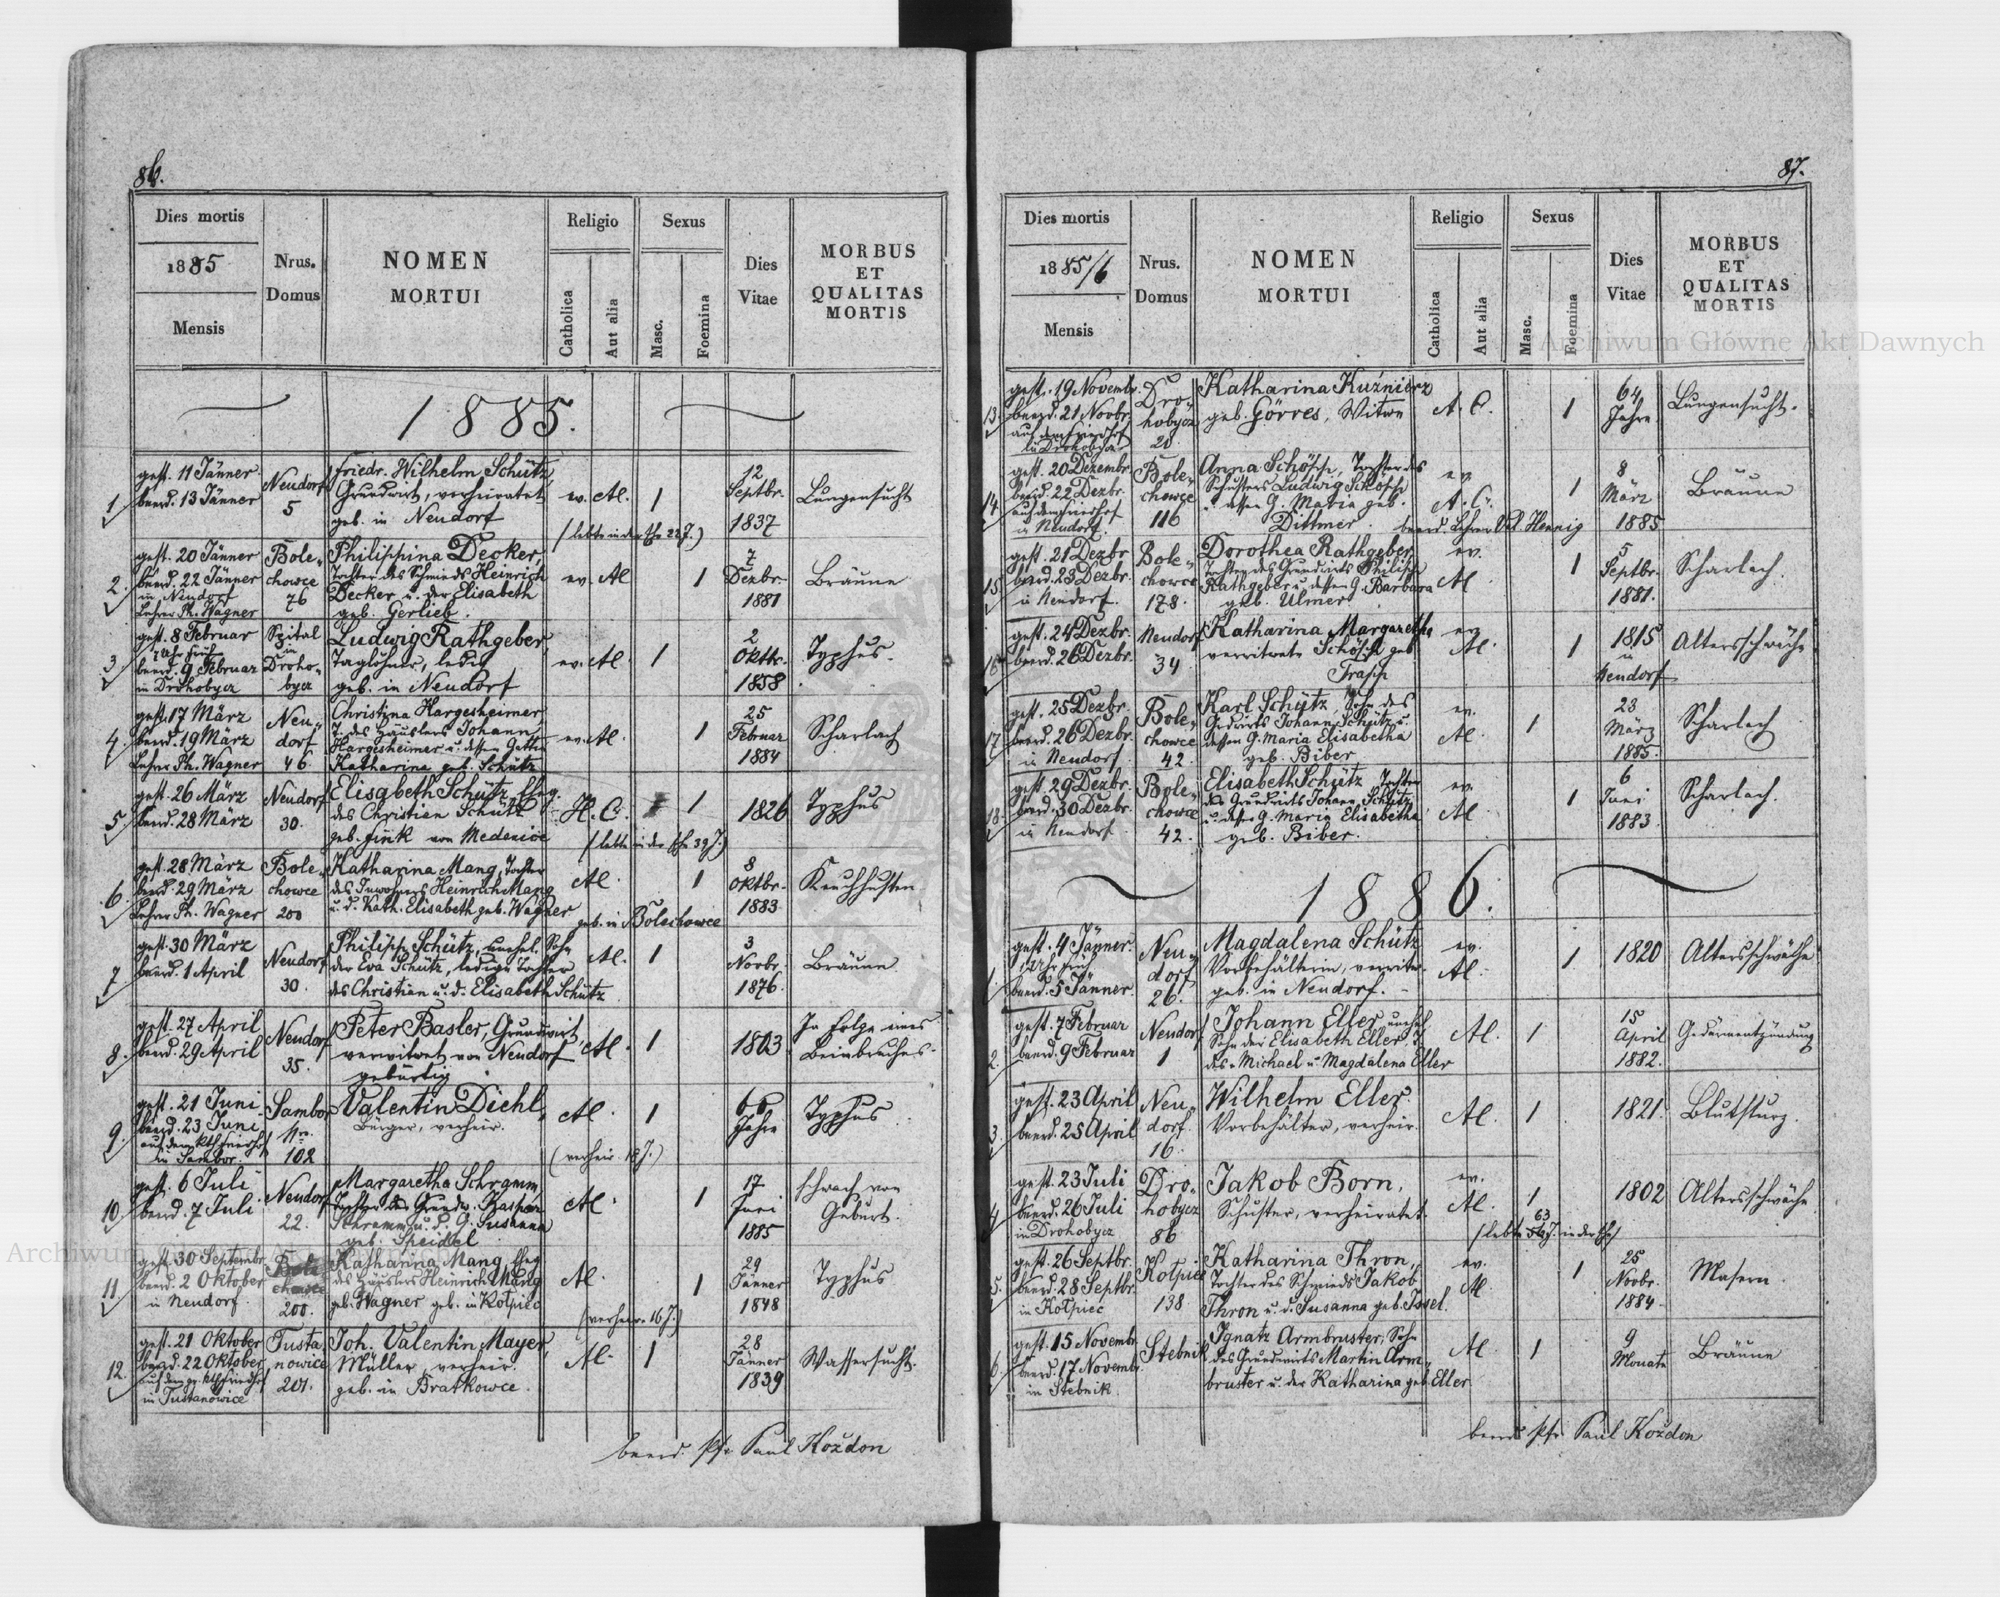 86.
Dies mortis
1885
Mensis
Nrus.
Domus
NOMEN
MORTUI
Religio
Catholica
Aut alia
Sexus
Masc.
Foemina
Dies
Vitae
MORBUS
ET
QUALITAS
MORTIS
1885.
1.
gest. 11 Jänner
beerd. 13 Jänner
Neudorf
5
Friedr. Wilhelm Schütz,
Grundwirt, verheiratet
geb. in Neudorf
ev. Al.
1
(lebte in der Ehe 22 J.)
12
Septbr.
1837
Lungensucht
2.
gest. 20 Jänner
beerd. 22 Jänner
in Neudorf
Lehrer Ph. Wagner
Bole-
chowce
76
Philippina Decker,
Tochter des Schmieds Heinrich
Decker u. der Elisabeth
geb. Gerlieb.
ev. Al
1
7
Dezbr.
1881
Bräune
3.
gest. 8 Februar
7 Uhr früh
beerd. 9 Februar
in Drohobycz
Spital
in
Droho-
bycz
Ludwig Rathgeber,
Taglöhner, ledig
geb. in Neudorf
ev. Al.
1
2
Oktbr.
1858
Typhus.
4.
gest. 17 März
beerd. 19 März
Lehrer Ph. Wagner
Neu-
dorf
46.
Christina Hargesheimer,
T. des Häuslers Johann
Hargesheimer u. dessen Gattin
Katharina geb. Schütz
ev. Al.
1
25
Februar
1884
Scharlach
5.
gest. 26 März
beerd. 28 März
Neudorf
30.
Elisabeth Schütz, Eheg.
des Christian Schütz
geb. Fink von Medenice
H. C.
1
(lebte in der Ehe 39 J.)
1826
Typhus
6.
gest. 28 März
beerd. 29 März
Lehrer Ph. Wagner
Bole-
chowce
200
Katharina Mang, Tochter
des Inwohners Heinrich Mang
u. d. Kath. Elisabeth geb. Wagner
geb. in Bolechowce
Al.
1
8
Oktbr.
1883
Keuchhusten
7
gest. 30 März
beerd. 1 April
Neudorf
30.
Philipp Schütz, unehel. Sohn
der Eva Schütz, ledige Tochter
des Christian u. d. Elisabeth Schütz
Al.
1
3
Novbr.
1876.
Bräune
8.
gest. 27 April
beerd. 29 April
Neudorf
35.
Peter Basler, Grundwirt,
verwitwet von Neudorf
gebürtig
Al.
1
1803
In Folge eines
Beinbruches.
9.
gest. 21 Juni
beerd. 23 Juni
auf dem kth. Friedhof
in Sambor.
Sambor
Nro.
102
Valentin Diehl,
Bürger, verheir.
Al.
1
(verheir. J.)
66
Jahre
Typhus
10.
gest. 6 Juli
beerd. 7 Juli
Neudorf
22.
Margaretha Schramm,
Tochter des Grundw. Kaspar
Schramm u. d. G. Susanna
geb. Speidel
Al.
1
17
Juni
1885
schwach von
Geburt.
11.
gest. 30 Septembr.
beerd. 2 Oktober
in Neudorf.
Bole
chowce
200.
Katharina Mang, Eheg.
des Häuslers Heinrich Mang
geb. Wagner geb. in Kolpiec
Al.
1
(verheir. 16 J.)
29
Jänner
1848
Typhus
12.
gest. 21 Oktober
beerd. 22 Oktober
auf dem gr. kth. Friedhof
in Tustanowice
Tusta
nowice
201.
Joh. Valentin Mayer,
Müller, verheir.
geb. in Bratkowce.
Al.
1
28
Jänner
1839
Wassersucht.
beerd. Pfr. Paul Kozdon
87.
Dies mortis
1885/6
Mensis
Nrus.
Domus
NOMEN
MORTUI
Religio
Catholica
Aut alia
Sexus
Masc.
Foemina
Dies
Vitae
MORBUS
ET
QUALITAS
MORTIS
13.
gest. 19 Novembr.
beerd. 21 Novbr.
auf dem Friedhof
in Drohobycz
Dro-
hobycz
20.
Katharina Kuźnierz
geb. Görres, Witwe
A. C.
1
64
Jahre
Lungensucht.
14
gest. 20 Dezembr.
beerd. 22 Dezbr.
auf dem Friedhof
in Neudorf.
Bole-
chowce
116
Anna Schösch, Tochter des
Schusters Ludwig Schösch
u. dessen G. Maria geb.
Dittmer.
ev.
A. C.
1
beerd. Lehrer Val. Hennig
8
März
1885
Bräune
15
gest. 21 Dezbr.
beerd. 23 Dezbr.
in Neudorf.
Bole-
chowce
178.
Dorothea Rathgeber,
Tochter des Grundwirts Philipp
Rathgeber u. dessen G. Barbara
geb. Ulmer.
ev.
Al
1
5
Septbr.
1881.
Scharlach.
16
gest. 24 Dezbr.
beerd. 26 Dezbr.
Neudorf
34
Katharina Margaretha
verwitwete Schösch geb.
Trapp
ev.
Al.
1
1815
in
Neudorf
Altersschwäche
17.
gest. 25 Dezbr.
beerd. 26 Dezbr.
in Neudorf.
Bole-
chowce
42.
Karl Schütz, Sohn des
Grdwirts Johann Schütz u.
dessen G. Maria Elisabetha
geb. Biber
ev.
Al.
1
23
März
1885.
Scharlach
18.
gest. 29 Dezbr.
beerd. 30 Dezbr.
in Neudorf.
Bole-
chowce
42.
Elisabeth Schütz, Tochter
des Grundwirts Johann Schütz
u. dessen G. Maria Elisabetha
geb. Biber.
ev.
Al
1
6
Juni
1883
Scharlach.
1886.
1.
gest. 4 Jänner
Uhr früh
beerd. 5 Jänner.
Neu-
dorf
26.
Magdalena Schütz
Vorbehälterin, verwitw.
geb. in Neudorf.
ev.
Al.
1
1820
Altersschwäche
2.
gest. 7 Februar
beerd. 9 Februar
Neudorf
1
Johann Eller unehel.
Sohn der Elisabeth Eller T.
des Michael u. Magdalena Eller
Al.
1
15
April
1882.
Gedärmentzündung
3.
gest. 23 April
beerd. 25 April
Neu-
dorf.
16.
Wilhelm Eller.
Vorbehälter, verheir.
Al.
1
1821.
Blutsturz.
4
gest. 23 Juli
beerd. 26 Juli
in Drohobycz
Dro-
hobycz
86
Jakob Born,
Schuster, verheiratet.
ev.
Al.
1
63
(lebte 56 J. in der Ehe)
1802
Altersschwäche
5.
gest. 26 Septbr.
beerd. 28 Septbr.
in Kolpiec
Kolpiec
138
Katharina Thron,
Tochter des Schmieds Jakob
Thron u. d. Susanna geb. Issel.
ev.
Al
1
25
Novbr.
1884
Masern.
6.
gest. 15 Novembr.
beerd. 17 Novembr.
in Stebnik
Stebnik
Ignatz Armbruster, Sohn
des Grundwirts Martin Arm-
bruster u. der Katharina geb. Eller
Al.
1
9
Monate
Bräune
beerd. Pfr. Paul Kozdon
Archiwum Główne Akt Dawnych
Archiwum Główne Akt Dawnych